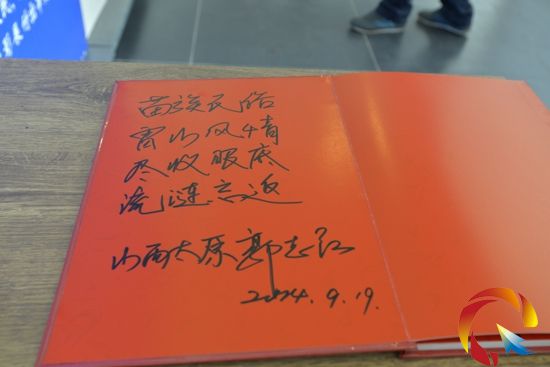 苗族民俗
雷山风情
尽收眼底
流涟忘返
山西太原郭志红
2024.9.19.